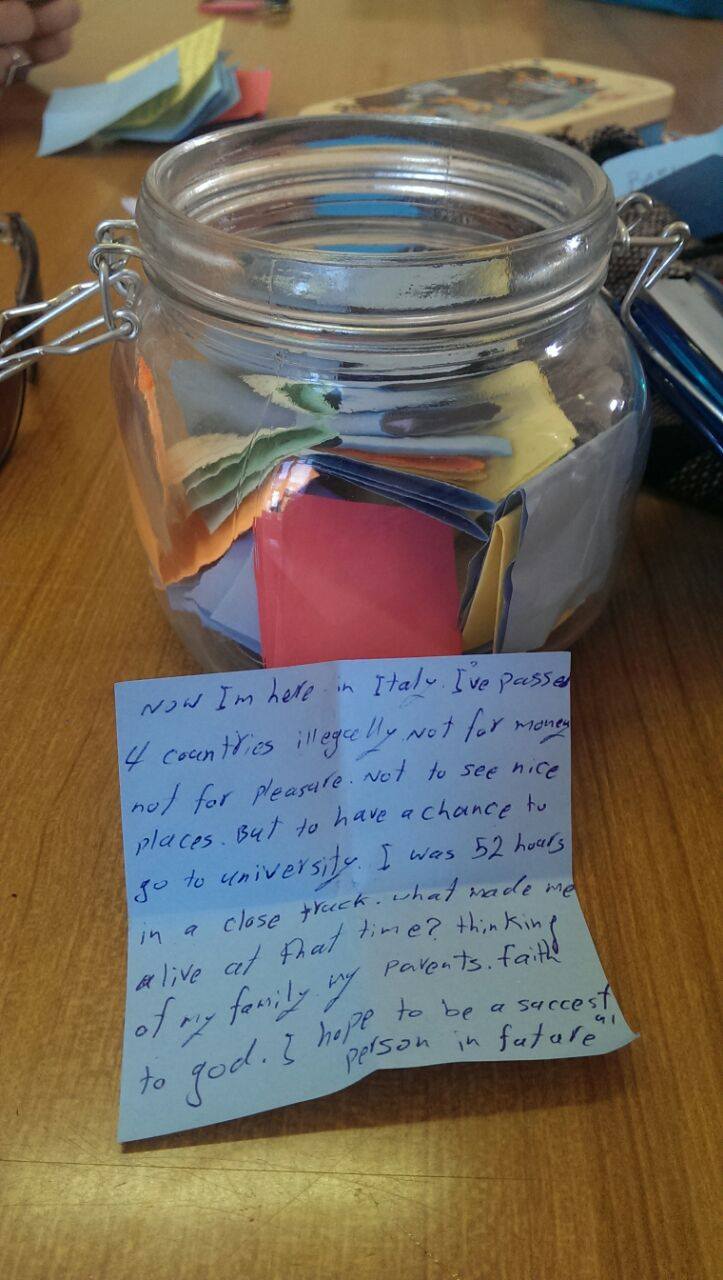 Now Im here in Italy. I've passed
4 countries illegally. Not for money
not for pleasure. Not to see nice
places. But to have a chance to
go to university. I was 52 hours
in a close truck. what made me
alive at that time? thinking
of my family my parents. faith
to god. I hope to be a succesful
person in future